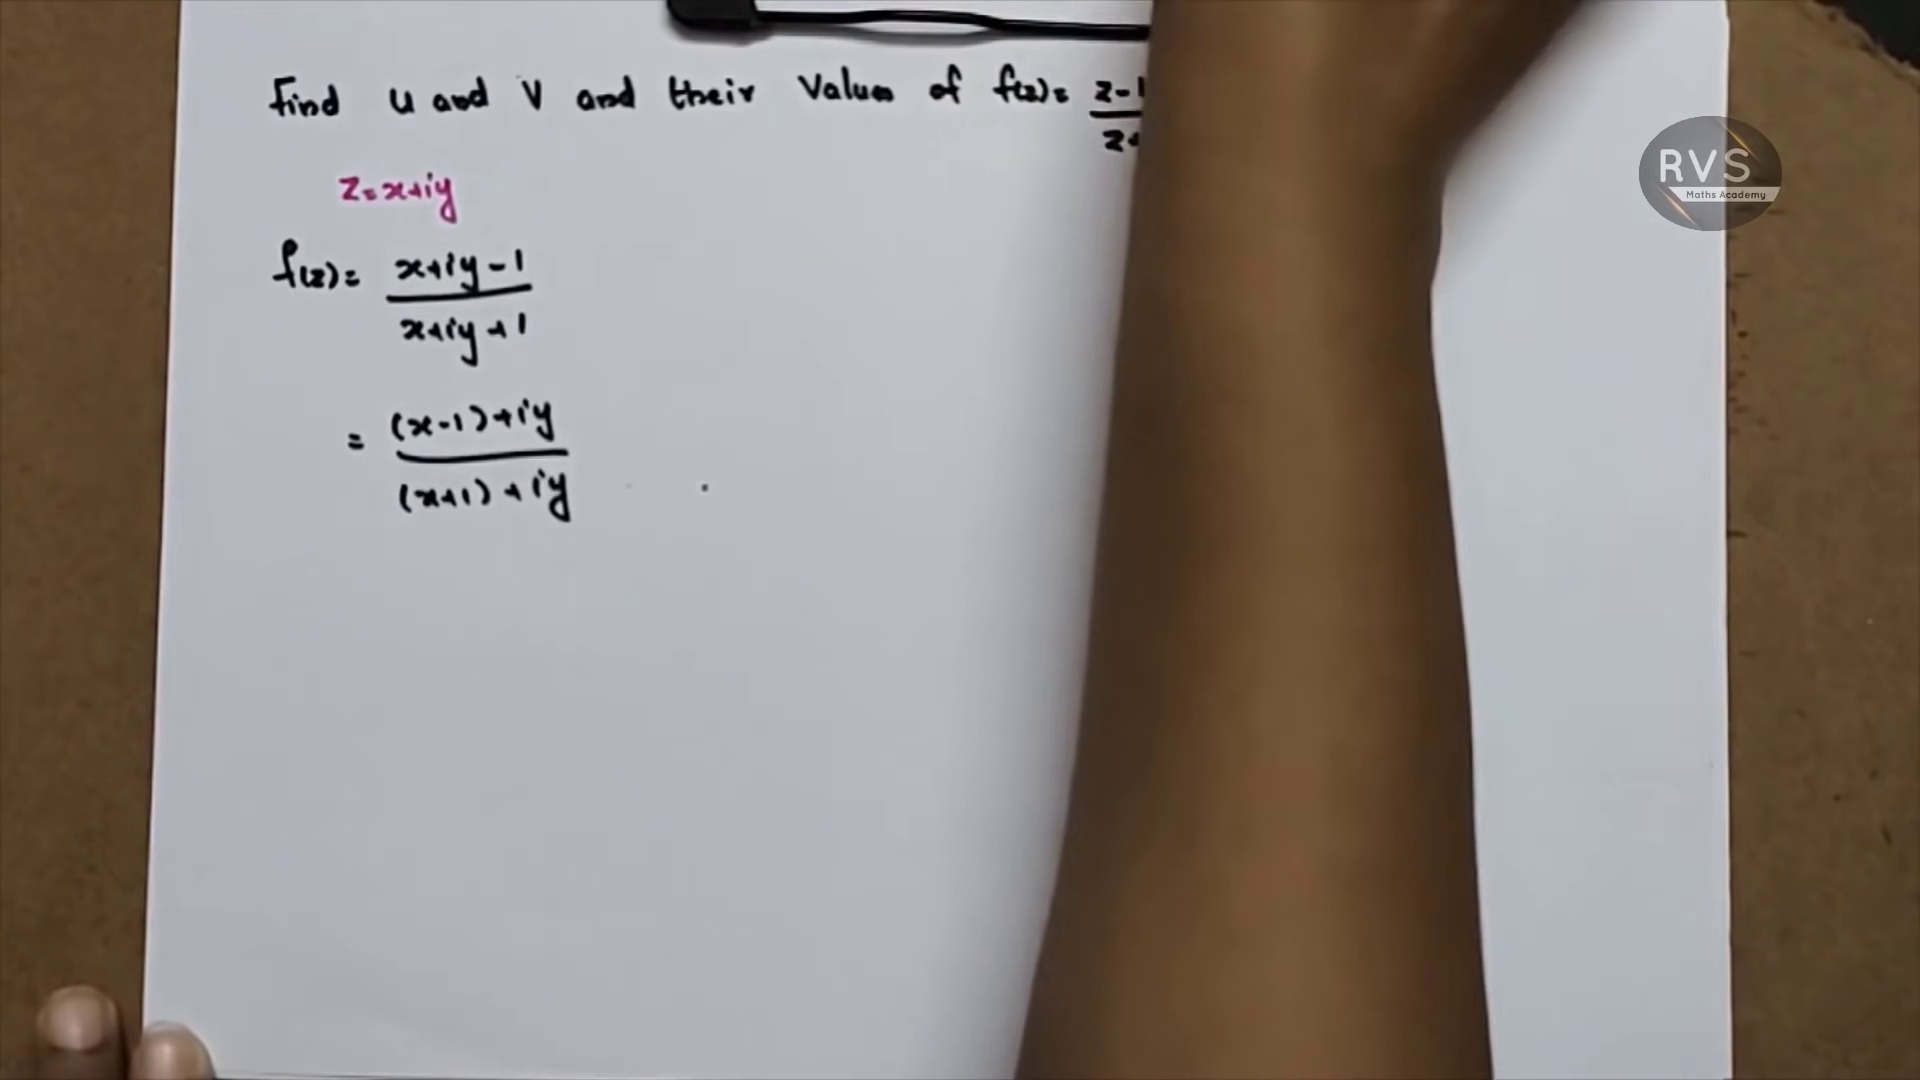 Find u and v and their values of f(z) = z-1
z+
z = x+iy
f(z) = x+iy-1
x+iy+1
= (x-1)+iy
(x+1)+iy
RVS
Maths Academy